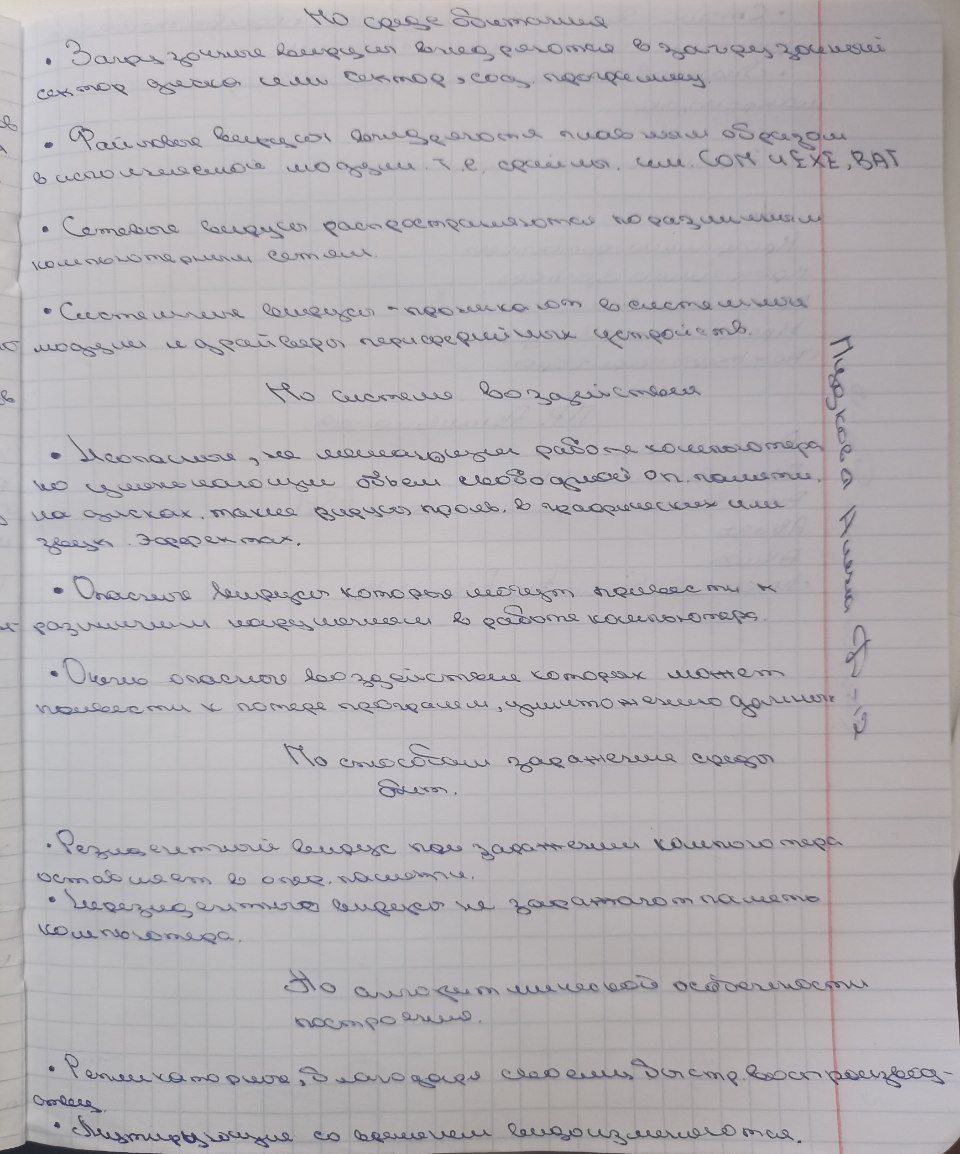 По среде обитания
• Загрузочные вирусы внедряются в загрузочный
сектор диска или сектор, сод. программу
• Файловые вирусы внедряются главным образом
в исполняемые модули. Т.е. файлы. им. COM и EXE, BAT
• Сетевые вирусы распространяются по различным
компьютерным сетям.
• Системные вирусы - проникают в системные
модули и драйверы периферийных устройств.
По системе воздействия
• Неопасные, не мешающие работе компьютера
но уменьшающие объем свободной оп. памяти,
на дисках. такие вирусы прояв. в графических или
звук. эффектах.
• Опасные вирусы которые могут привести к
различным нарушениям в работе компьютера.
• Очень опасные воздействие которых может
привести к потере программ, уничтожению данных
По способам заражения среды
бит.
• Резидентный вирус при заражении компьютера
оставляет в опер. памяти.
• Нерезидентные вирусы не заражают память
компьютера.
По алгоритмической особенности
построения.
• Репликаторные, благодаря своему быстр. воспроизвод-
ству
• Мутирующие со временем видоизменяются.
Алина